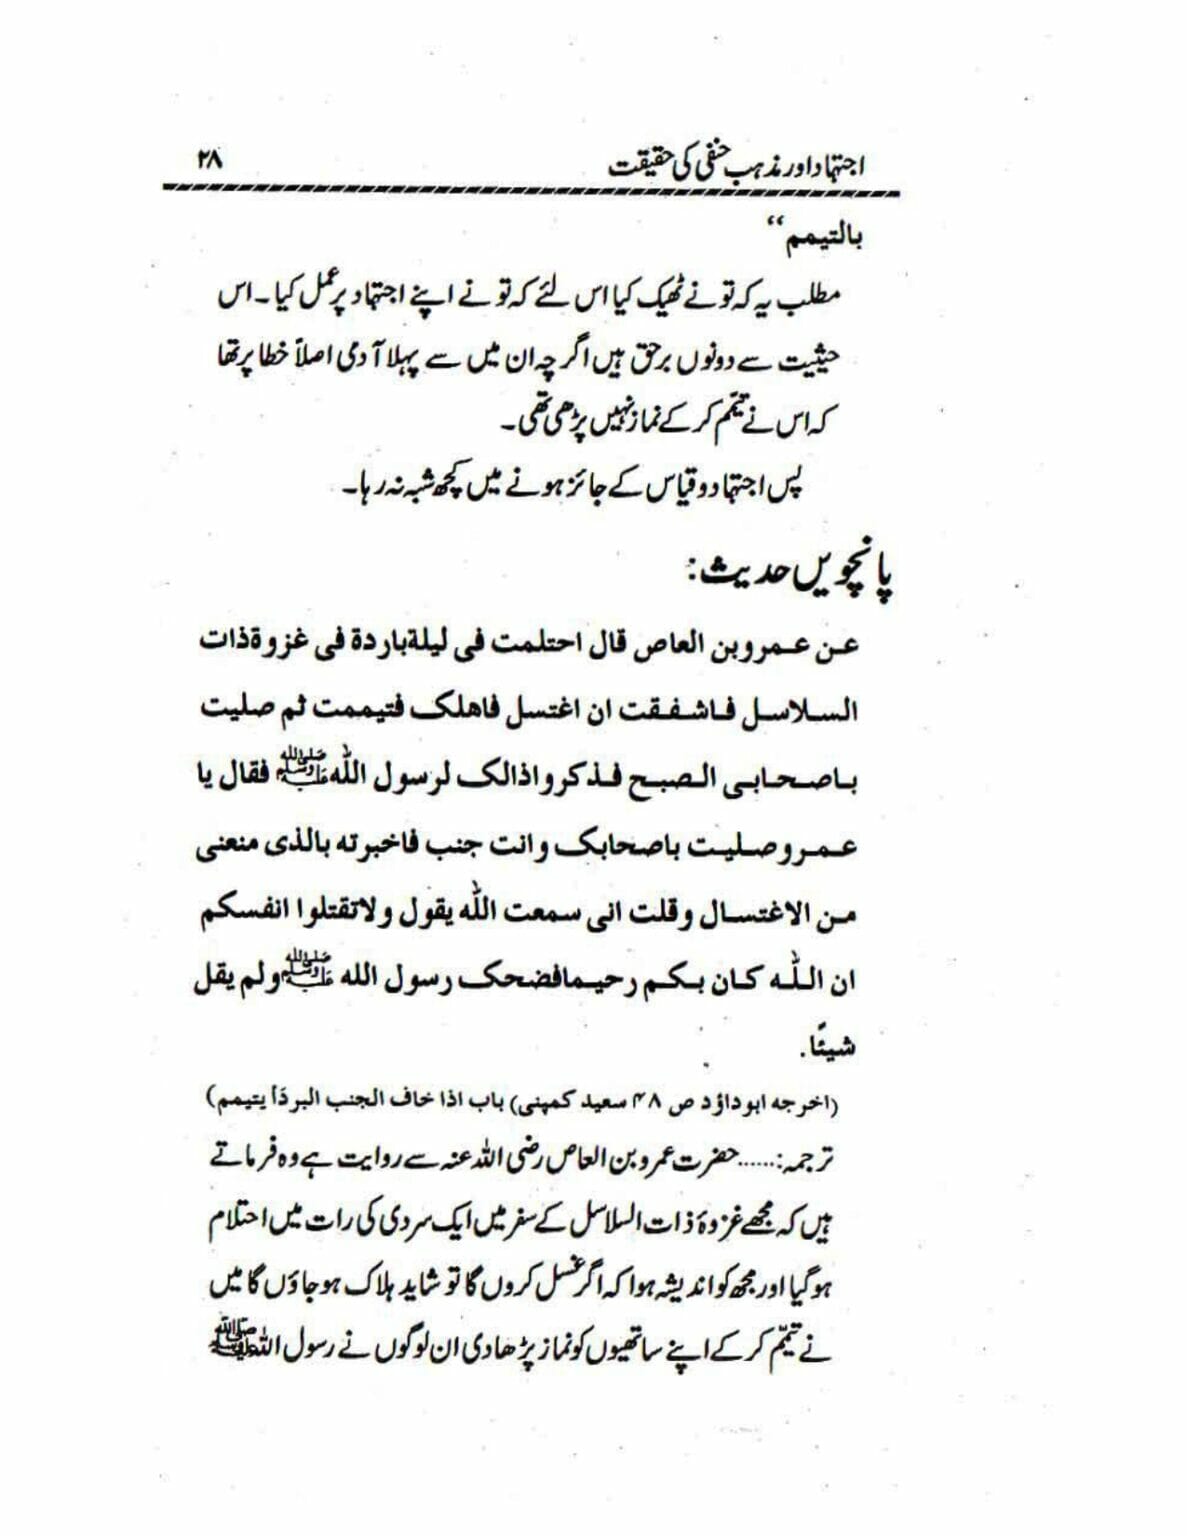 اجتہاد اور مذہب حنفی کی حقیقت ۲۸
بالتیمم“
مطلب یہ کہ تو نے ٹھیک کیا اس لئے کہ تو نے اپنے اجتہاد پر عمل کیا۔ اس
حیثیت سے دونوں برحق ہیں اگر چہ ان میں سے پہلا آدمی اصلاً خطا پر تھا
کہ اس نے تیمّم کر کے نماز نہیں پڑھی تھی۔
پس اجتہاد و قیاس کے جائز ہونے میں کچھ شبہ نہ رہا۔
پانچویں حدیث:
عن عمرو بن العاص قال احتلمت فی لیلة باردة فی غزوة ذات
السلاسل فاشفقت ان اغتسل فاهلک فتیممت ثم صلیت
باصحابی الصبح فذکروا ذالک لرسول اللّٰه ﷺ فقال یا
عمرو صلیت باصحابک وانت جنب فاخبرته بالذی منعنی
من الاغتسال وقلت انی سمعت اللّٰه یقول ولا تقتلوا انفسکم
ان اللّٰه کان بکم رحیما فضحک رسول الله ﷺ ولم یقل
شیئًا.
(اخرجه ابوداؤد ص ۴۸ سعید کمپنی) باب اذا خاف الجنب البرد أیتیمم)
ترجمہ:...... حضرت عمرو بن العاص رضی اللہ عنہ سے روایت ہے وہ فرماتے
ہیں کہ مجھے غزوۂ ذات السلاسل کے سفر میں ایک سردی کی رات میں احتلام
ہو گیا اور مجھ کو اندیشہ ہوا کہ اگر غسل کروں گا تو شاید ہلاک ہو جاؤں گا میں
نے تیمّم کر کے اپنے ساتھیوں کو نماز پڑھا دی ان لوگوں نے رسول اللہ ﷺ